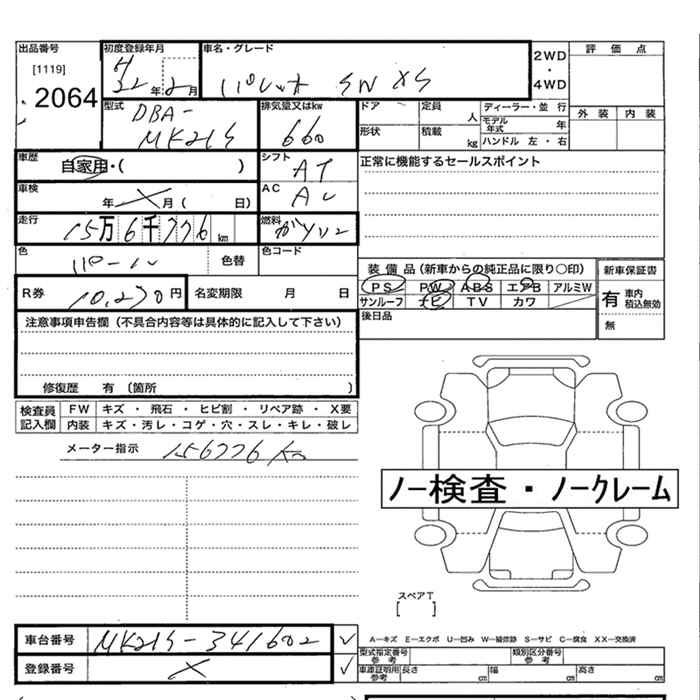 出品番号
[1119]
2064
初度登録年月
H 22年 2月
車名・グレード
パレット SW XS
2WD
・
4WD
評価点
外装 内装
型式
DBA-
MK21S
排気量又はkw
660
ドア
定員
人
ディーラー・並 行
モデル年式 年
形状
積載
kg
ハンドル 左・右
車歴
自家用・( )
シフト
AT
正常に機能するセールスポイント
車検
年 X 月 ( 日)
AC
走行
15万6千776km
燃料
ガソリン
色
パール
色替
色コード
装備品(新車からの純正品に限り〇印)
PS PW ABS エアB アルミW
サンルーフ ナビ TV カワ
新車保証書
有 車内積込無効
無
R券
10,270円
名変期限 月 日
後日品
注意事項申告欄(不具合内容等は具体的に記入して下さい)
修復歴 有 (箇所 )
検査員記入欄
FW キズ・飛石・ヒビ割・リペア跡・X要
内装 キズ・汚レ・コゲ・穴・スレ・キレ・破レ
メーター指示 156776 km
ノー検査・ノークレーム
スペアT
[ ]
車台番号 MK21S-341602 ✓
登録番号 X ✓
A−キズ E−エクボ U−凹み W−補修跡 S−サビ C−腐食 XX−交換済
型式指定番号
参考
類別区分番号
参考
車庫証明用
参考
長さ cm
幅 cm
高さ cm